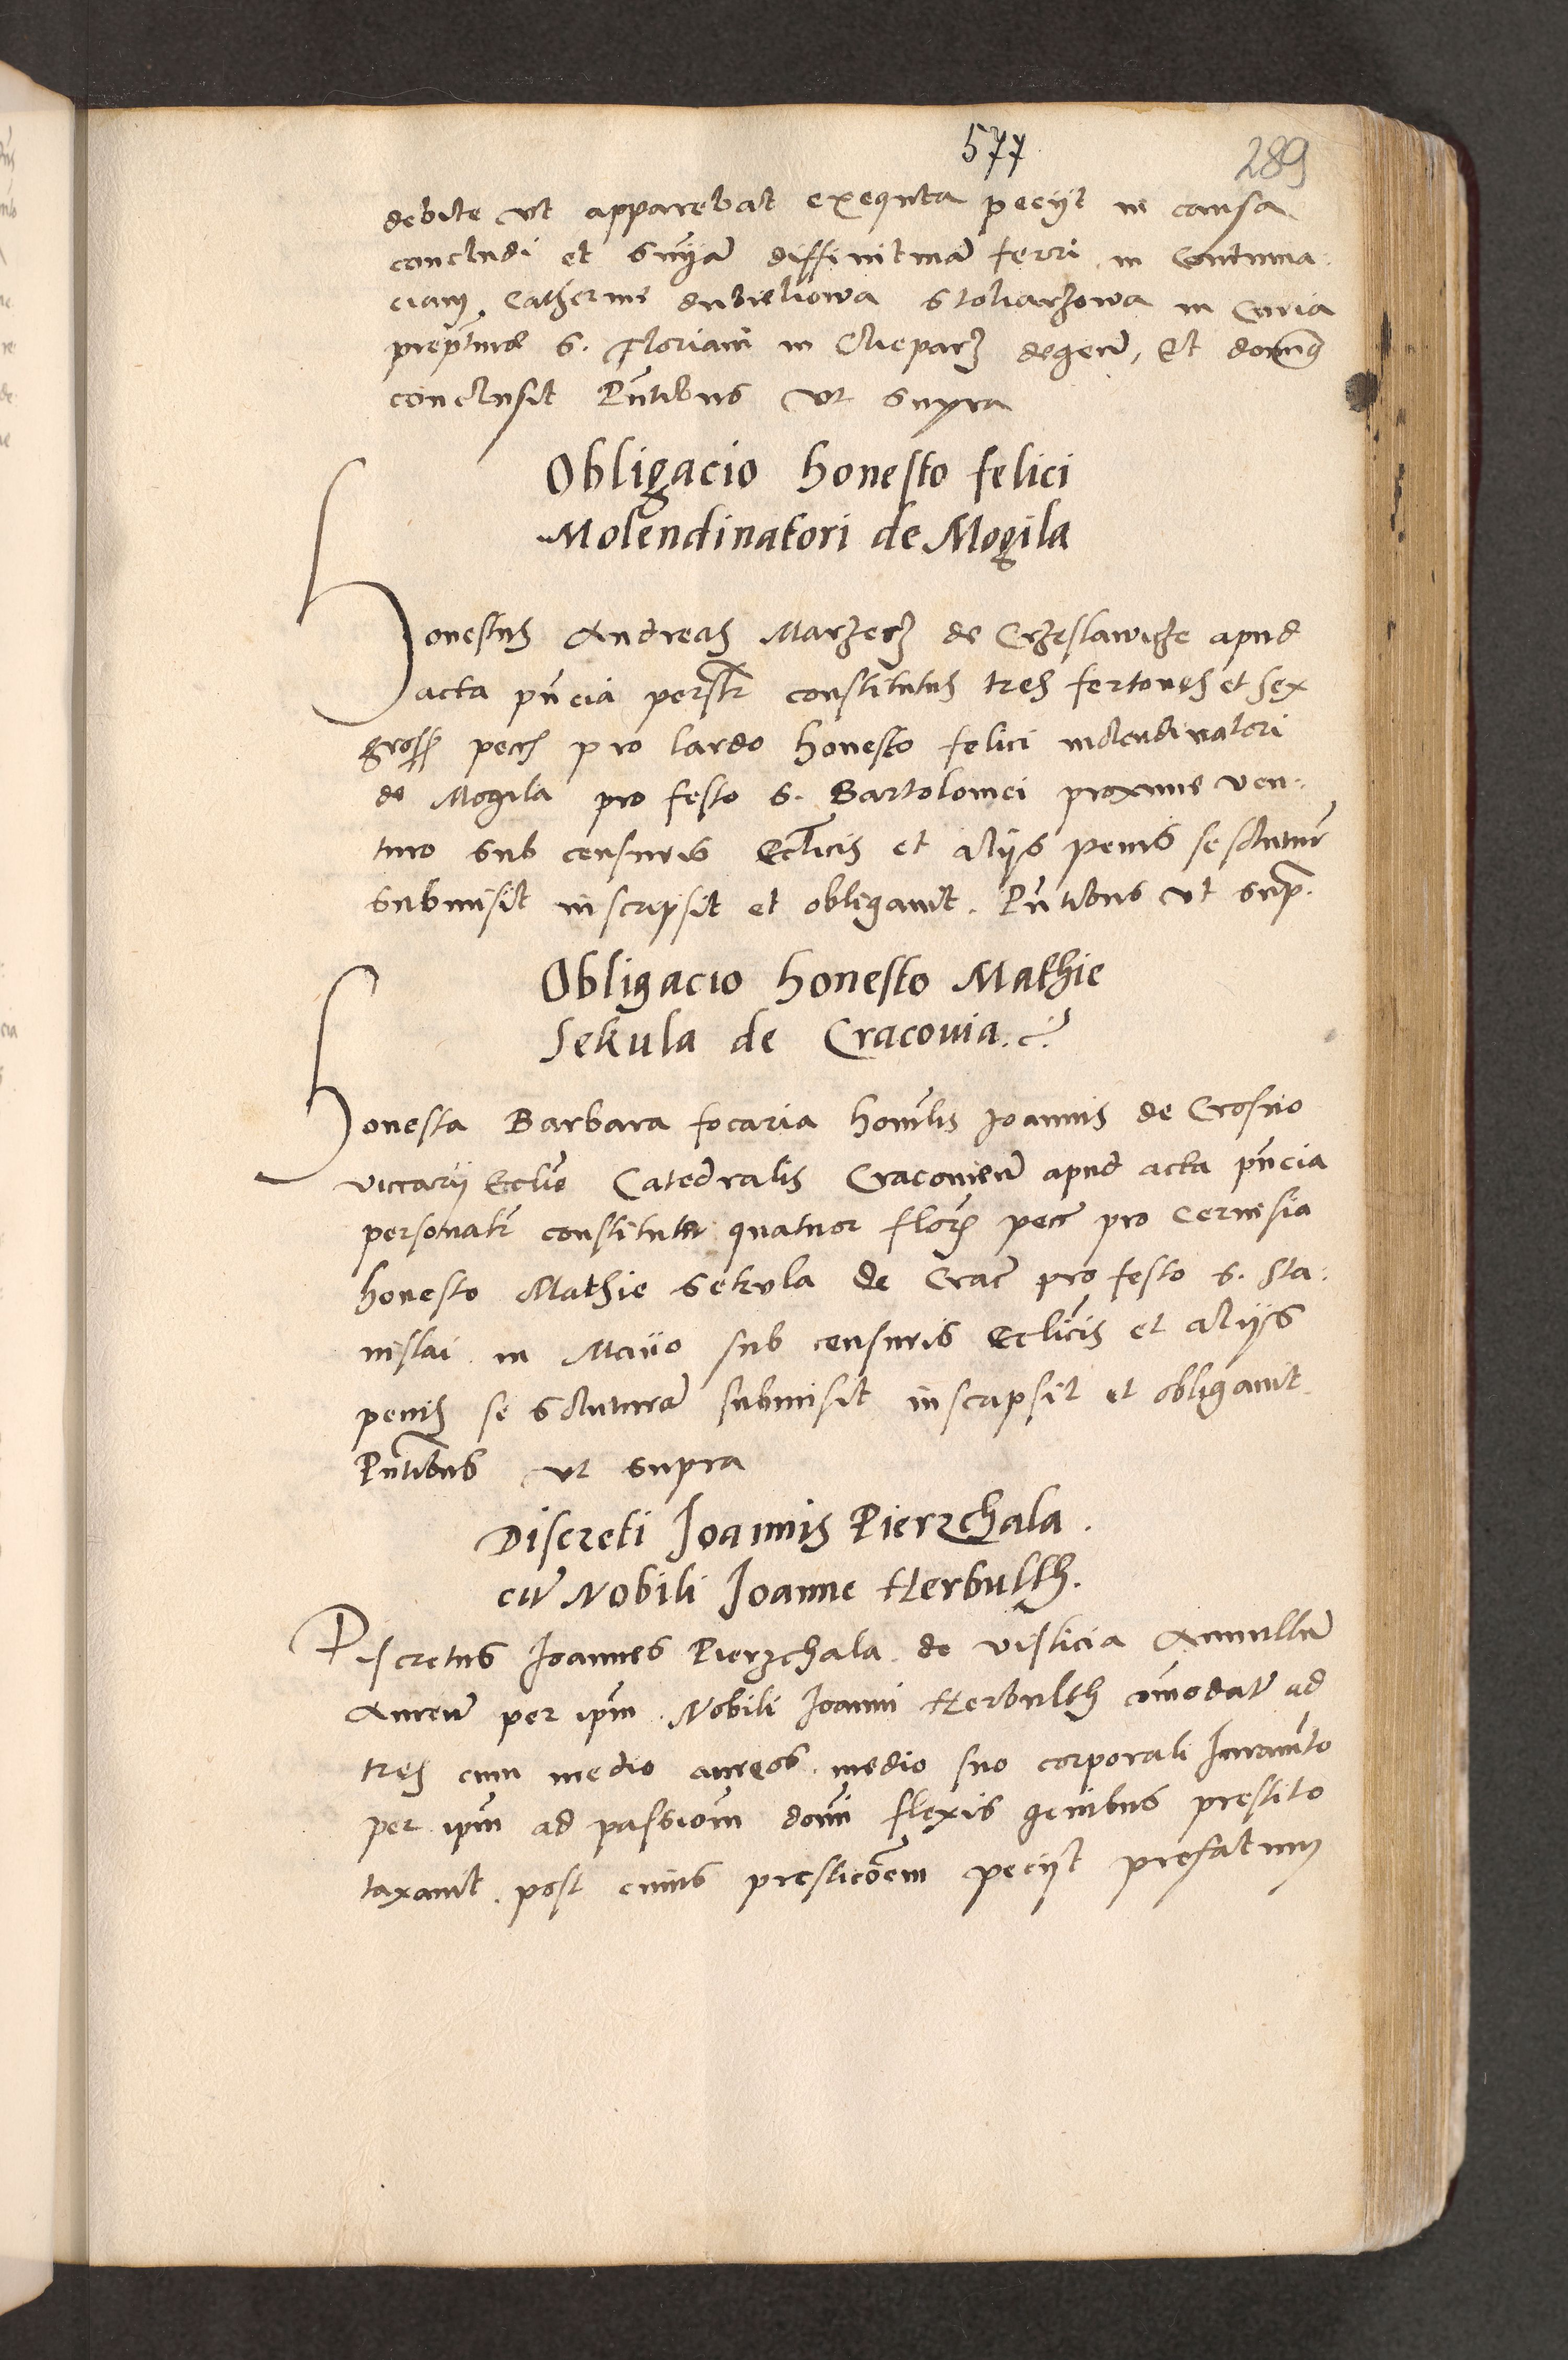 577
289
debite ut apparebat exequuta peciit in causa
concludi et sn̄iā diffinitiuā ferri in contuma:
ciam Catherine dubieliowa Stoliarzowa in Curia
prep̄ture S. Floriani in Cleparz degeñ, Et domin9
conclusit Pn̄tibus ut supra
Obligacio honesto felici
Molendinatori de Mogila
Honestus Andreas Marzecz de Crzeslawicze apud
acta pn̄cia persr̄ constitutus tres fertones et sex
gross pecc̄ pro lardo honesto felici molendinatori
de Mogila pro festo S. Bartolomei proxime ven:
turo sub censuris Ecl̄ticis et aliis penis se soluturū
submisit inscripsit et obligauit. Pn̄tibus ut sup̄.
Obligacio honesto Mathie
Sekula de Cracouia
Honesta Barbara focaria hon̄lis Joannis de Crosno
vicarii Eccl̄ie Catedralis Cracouieñ apud acta pn̄cia
personalr̄ constituta quatuor floꝶ pecc̄ pro ceruisia
honesto Mathie Sekula de Crac̄ pro festo S. Sta:
nislai in Maiio sub censuris Eccl̄icis et aliis
penis se soluturā submisit inscripsit et obligauit
Pn̄tibus ut supra
Discreti Joannis Pierzchala.
cū Nobili Joanne Herbulth.
Discretus Joannes Pierzchala de visticia Annullū
Aureū per ip̄m Nobili Joanni Herbulth com̄odatū ad
tres cum medio aureos medio suo corporali Juram̄to
per ip̄m ad passion̄m dom̄ flexis genibus prestito
taxauit. post cuius presticōem peciit prefatum